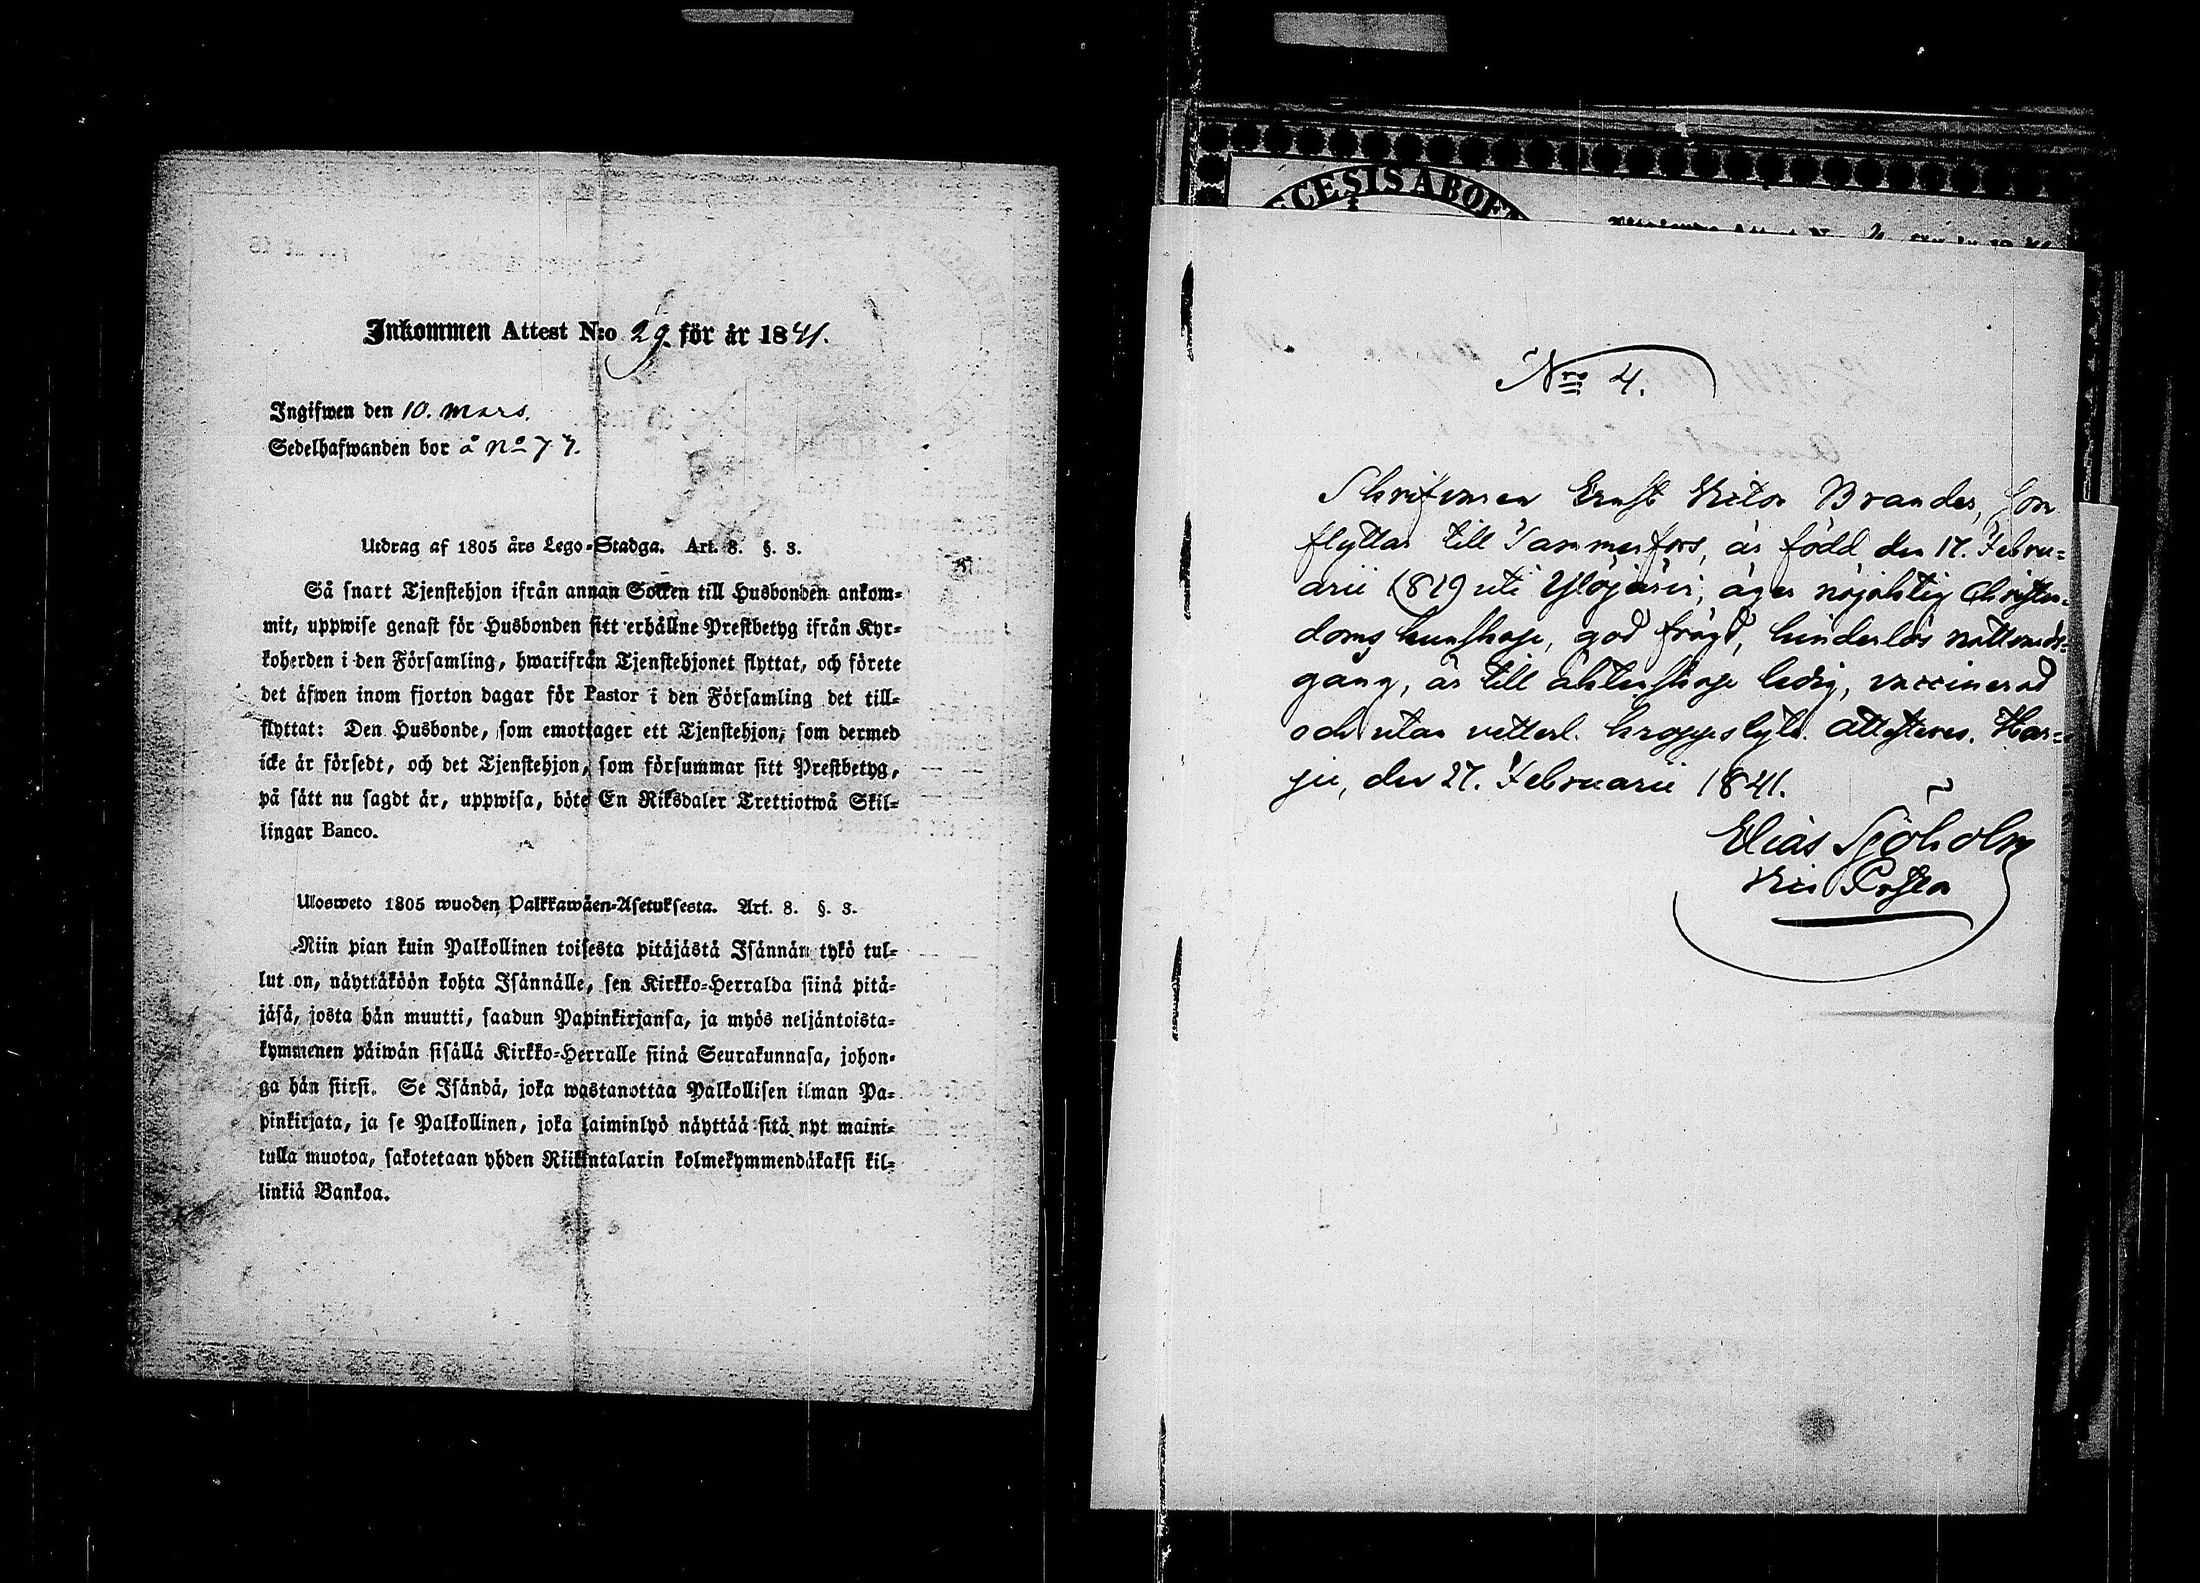 Inkommen Attest N:o 29 för år 1841.
Ingifwen den 10. Mars.
Sedelhafwanden bor å No 77.
Utdrag af 1805 års Lego-Stadga. Art. 8. §. 3.
Så snart Tjenstehjon ifrån annan Socken till Husbonden ankom-
mit, uppwise genast för Husbonden sitt erhållne Prestbetyg ifrån Kyr-
koherden i den Församling, hwarifrån Tjenstehjonet flyttat, och förete
det äfwen inom fjorton dagar för Pastor i den Församling det till-
flyttat: Den Husbonde, som emottager ett Tjenstehjon, som dermed
icke är försedt, och det Tjenstehjon, som försummar sitt Prestbetyg,
på sätt nu sagdt är, uppwisa, böte En Riksdaler Trettiotwå Skil-
lingar Banco.
Ulosweto 1805 wuoden Palkkawäen-Asetuksesta. Art. 8. §. 3.
Niin pian kuin Palkollinen toisesta pitäjästä Isännän tykö tul-
lut on, näyttäköön kohta Isännälle, sen Kirkko-Herralda siinä pitä-
jäsä, josta hän muutti, saadun Papinkirjansa, ja myös neljäntoista-
kymmenen päiwän sisällä Kirkko-Herralle siinä Seurakunnasa, johon-
ga hän siirsi. Se Isändä, joka wastanottaa Palkollisen ilman Pa-
pinkirjata, ja se Palkollinen, joka laiminlyö näyttää sitä nyt maini-
tulla muotoa, sakotetaan yhden Riikintalarin kolmekymmendäkaksi kil-
linkiä Bankoa.
CESIS ABOE
Nro 4.
Skrifvaren Ernst Victor Brander, som
flyttar till Tammerfors, är född den 17. Febru-
arii 1819 uti Ylöjärvi; äger nöjaktig Christen-
doms kunskap, god frägd, hinderlös nattvards-
gång, är till äktenskap ledig, vaccinerad
och utan vetterl. kroppslyte. Attesteras. Har-
ju, den 27. Februarii 1841.
Elias Sjöholm
Vice Pastor